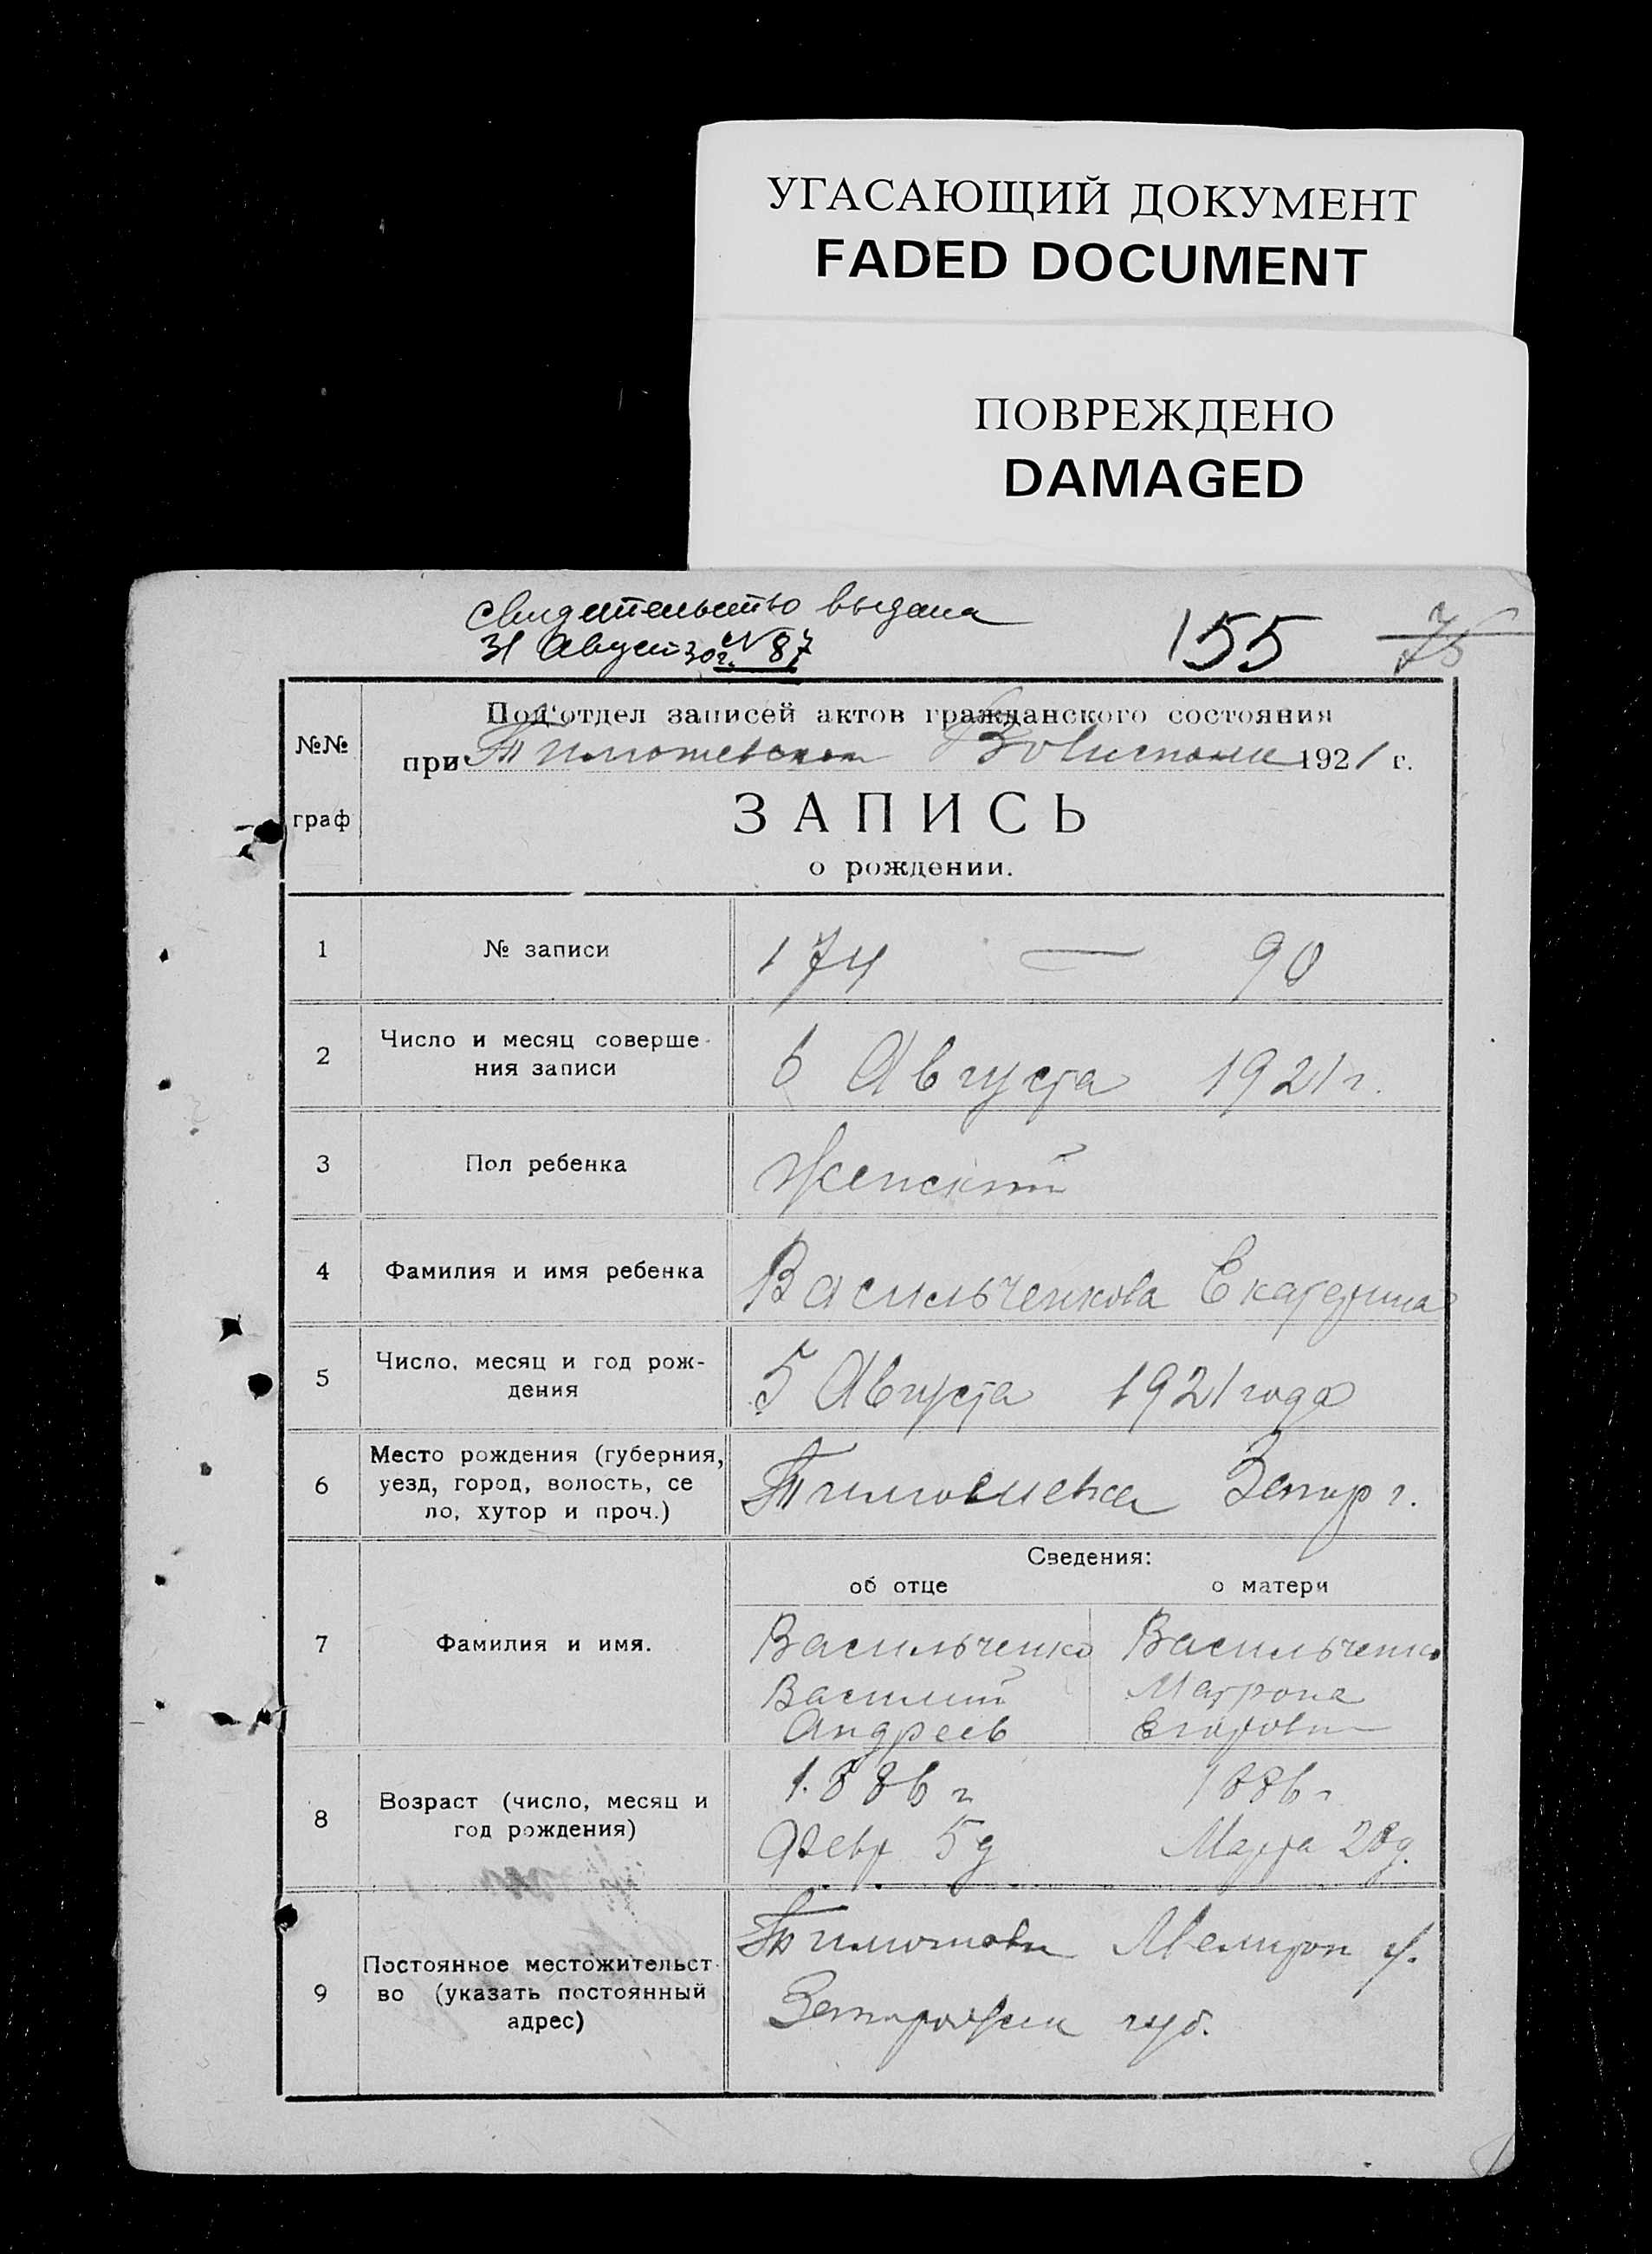 УГАСАЮЩИЙ ДОКУМЕНТ
FADED DOCUMENT
ПОВРЕЖДЕНО
DAMAGED
Свидетельство выдана
31 Август 30 г. № 87
155 76
Под'отдел записей актов гражданского состояния
№№
при Тимошевском Волисполк 1921 г.
граф
ЗАПИСЬ
о рождении.
1 № записи 174 — 90
2 Число и месяц соверше-
ния записи
6 Августа 1921 г.
3 Пол ребенка Женский
4 Фамилия и имя ребенка Васильченкова Екатерина
5 Число, месяц и год рож-
дения
5 Августа 1921 года
6 Место рождения (губерния,
уезд, город, волость, се
ло, хутор и проч.)
Тимошевка Запор г.
Сведения:
об отце о матери
7 Фамилия и имя.
Васильченко Васильченко
Василий Матрона
Андреев Егоровн
8 Возраст (число, месяц и
год рождения)
1886 г 1886 г
Февр 5 д Марта 28 д.
9 Постоянное местожительст-
во (указать постоянный
адрес)
Тимошовк Мелитоп у.
Запорожск губ.